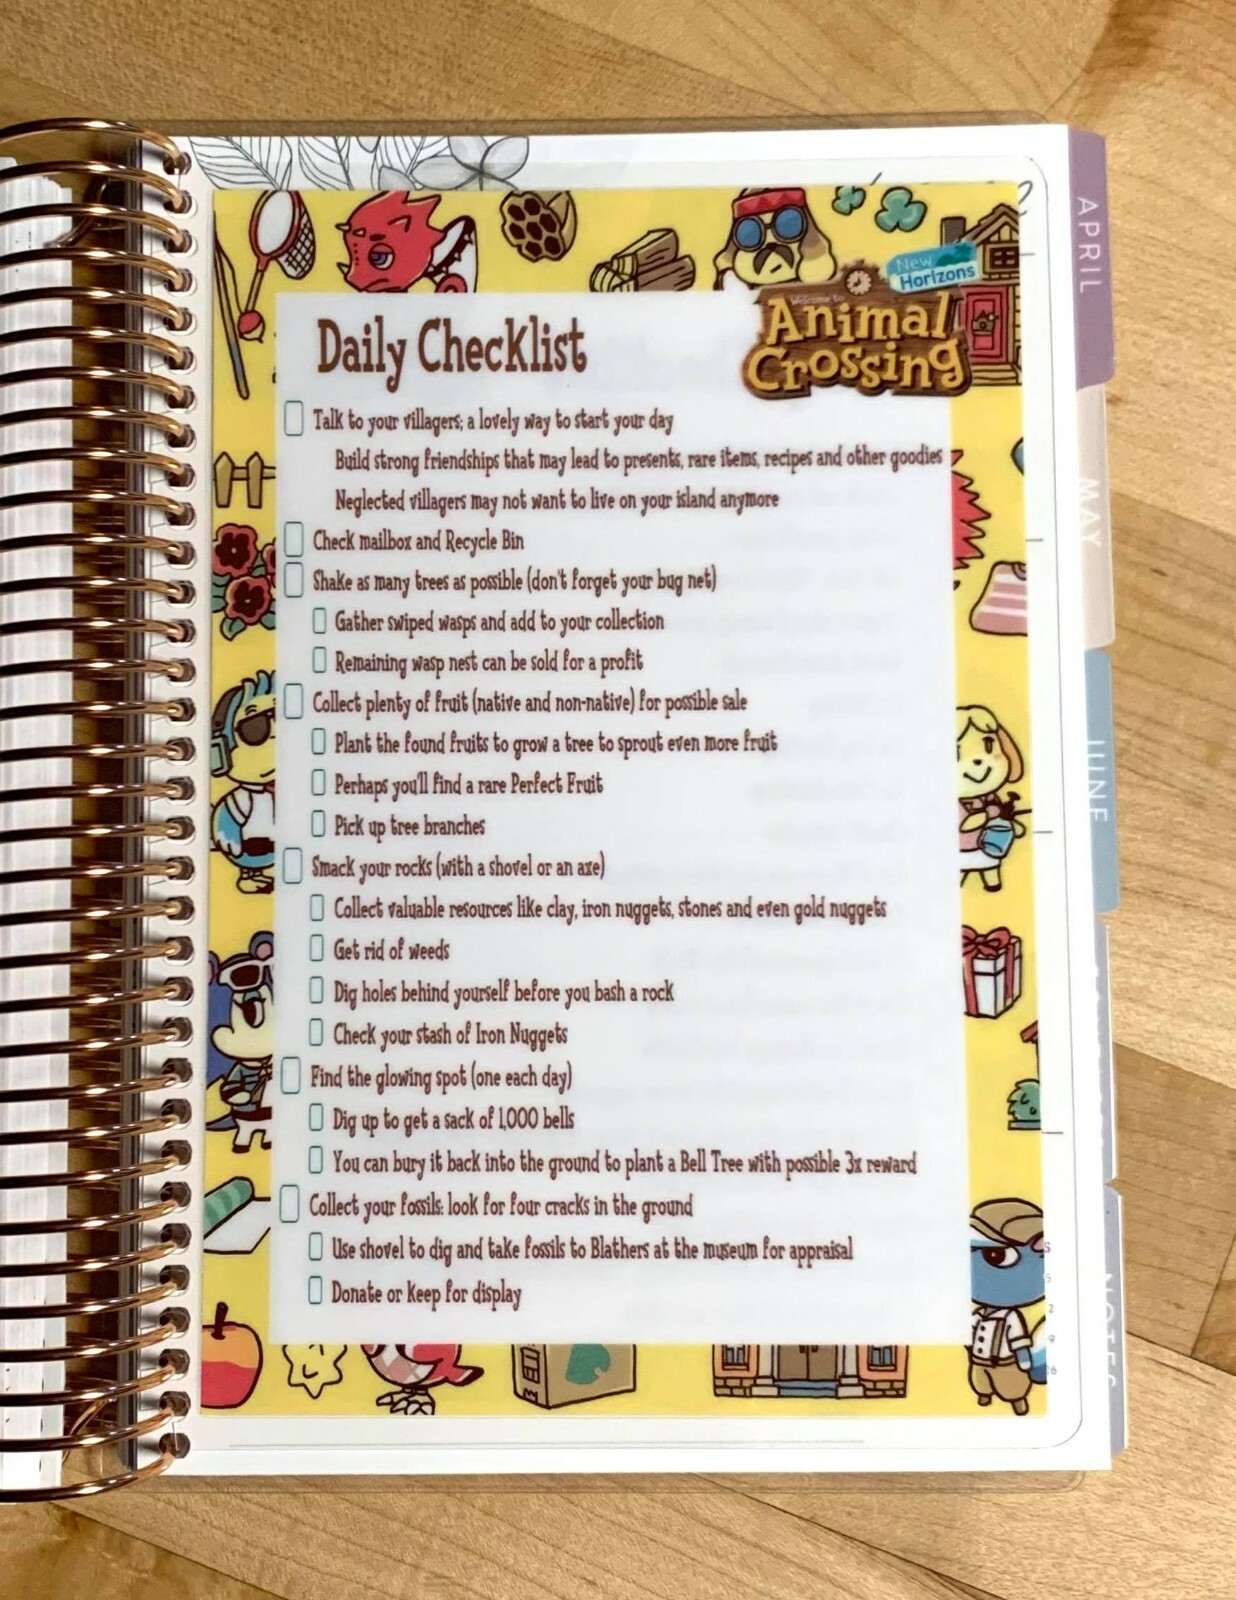 New
Horizons
Welcome to
Animal
Crossing
Daily Checklist
Talk to your villagers; a lovely way to start your day
Build strong friendships that may lead to presents, rare items, recipes and other goodies
Neglected villagers may not want to live on your island anymore
Check mailbox and Recycle Bin
Shake as many trees as possible (don't forget your bug net)
Gather swiped wasps and add to your collection
Remaining wasp nest can be sold for a profit
Collect plenty of fruit (native and non-native) for possible sale
Plant the found fruits to grow a tree to sprout even more fruit
Perhaps you'll find a rare Perfect Fruit
Pick up tree branches
Smack your rocks (with a shovel or an axe)
Collect valuable resources like clay, iron nuggets, stones and even gold nuggets
Get rid of weeds
Dig holes behind yourself before you bash a rock
Check your stash of Iron Nuggets
Find the glowing spot (one each day)
Dig up to get a sack of 1,000 bells
You can bury it back into the ground to plant a Bell Tree with possible 3x reward
Collect your fossils: look for four cracks in the ground
Use shovel to dig and take fossils to Blathers at the museum for appraisal
Donate or Keep for display
APRIL
MAY
JUNE
NOTES